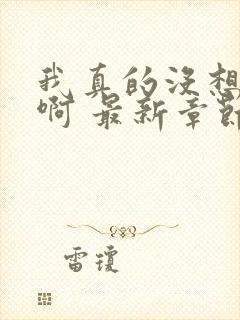 我真的没想
啊 最新章節
雷瓊